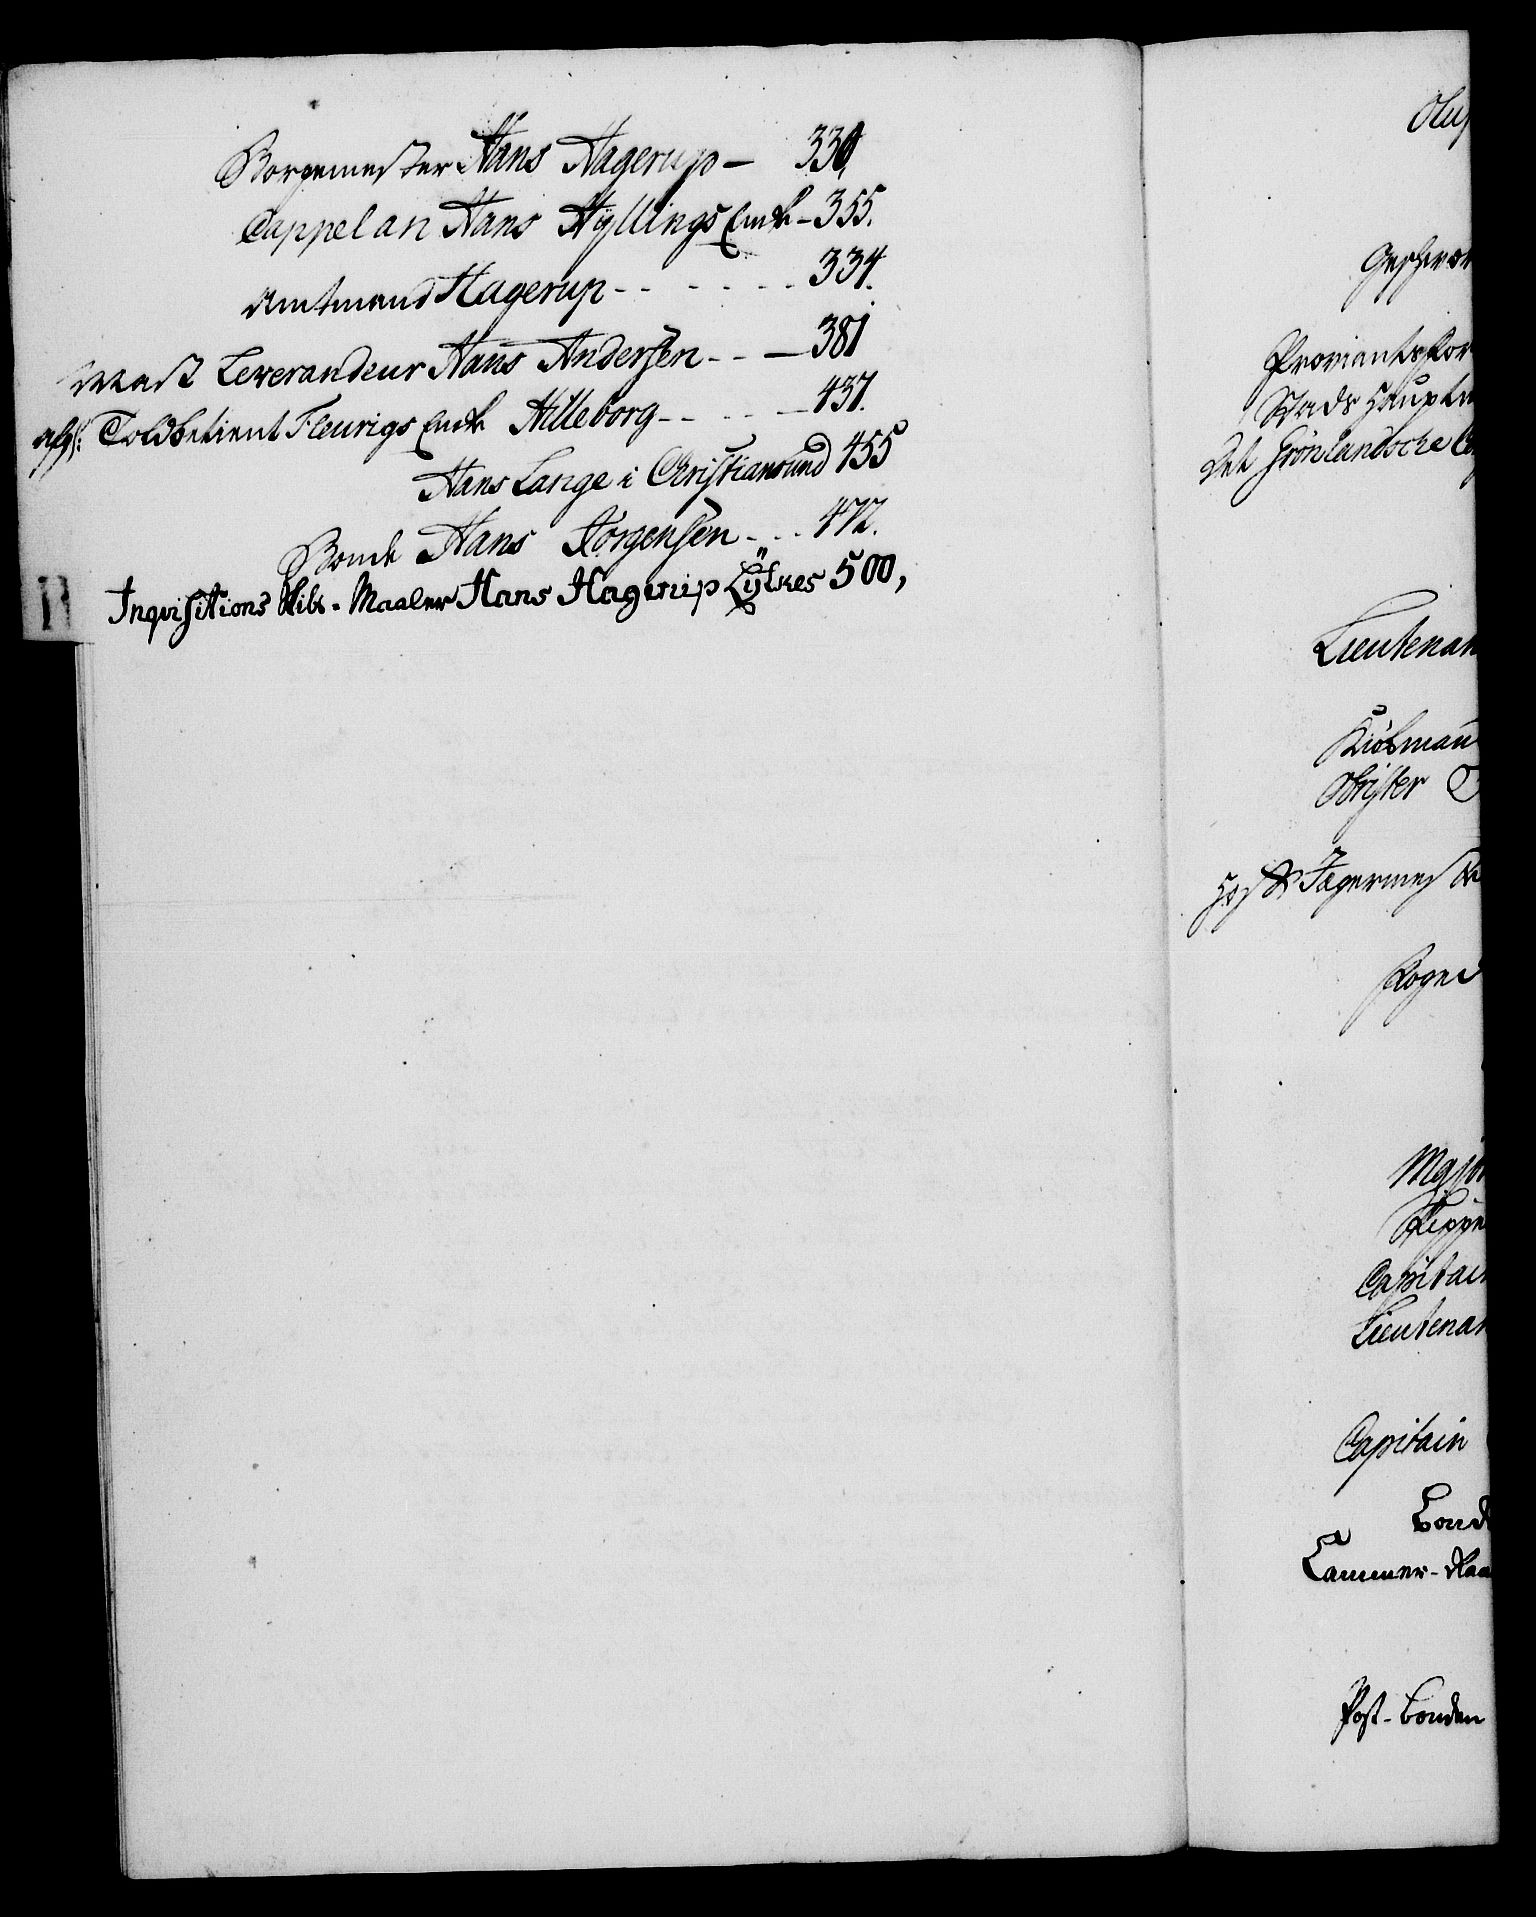 Borgemester Hans Hagerup — 330,
Cappelan Hans Hyllings Enke – 355.
Amtmand Hagerup - - - - - - 334.
Mast Leverandeur Hans Andersen - - — 381
afg: Toldbetient Fleurigs Enke Hilleborg - - - - — 437.
Hans Lange i Christiansund 455
Bonde Hans Jörgensen - - - 472.
Inquisitions Skibs - Maaler Hans Hagerup Lÿtkes 500,
H
Proviantsfor
Stads Hauptm
Det Grönlandsche Co
Lieutenan
Kiöbmand
Obrister
Hof & Jægermest
Foged
Major
Skippe
Capitain
Lieutenan
Capitain
Bond
Cammer-Raa
Post-bonden